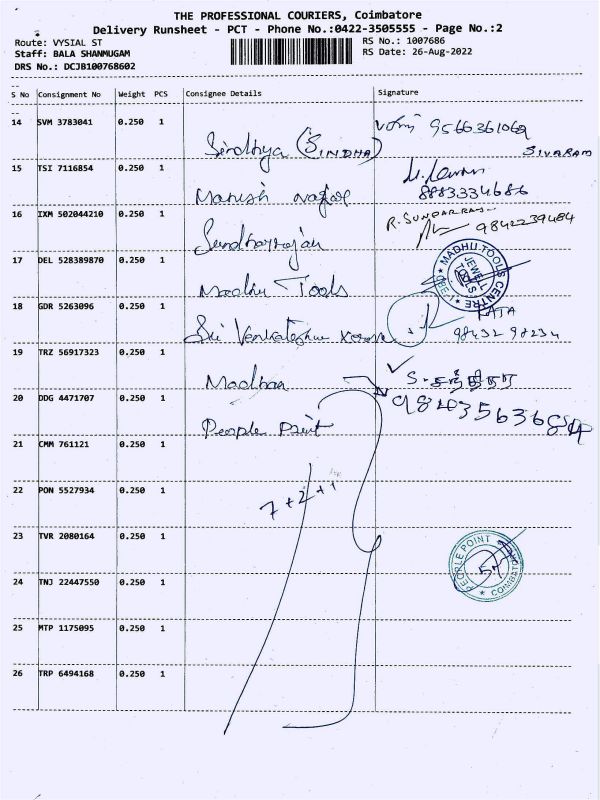 THE PROFESSIONAL COURIERS, Coimbatore
Delivery Runsheet - PCT - Phone No.:0422-3505555 - Page No.:2
Route: VYSIAL ST RS No.: 1007686
Staff: BALA SHANMUGAM RS Date: 26-Aug-2022
DRS No.: DCJB100768602
S No Consignment No Weight PCS Consignee Details Signature
14 SVM 3783041 0.250 1 Sindhya (SINDHA) 9566361069 SIVARAM
15 TSI 7116854 0.250 1 Manish 8883334686
16 IXM 502044210 0.250 1 Sundharrajan R.SUNDARRAJ 9842239484
17 DEL 528389870 0.250 1 Madhu Tools MADHU TOOLS CENTRE JEWELL TOOLS
18 GDR 5263096 0.250 1 Sri Venkateshwara RAJA 98432 98234
19 TRZ 56917323 0.250 1 Madhan S.
20 DDG 4471707 0.250 1 People Point
21 CMM 761121 0.250 1
22 PON 5527934 0.250 1 7+2+1
23 TVR 2080164 0.250 1 PEOPLE POINT COIMBATORE
24 TNJ 22447550 0.250 1
25 MTP 1175095 0.250 1
26 TRP 6494168 0.250 1